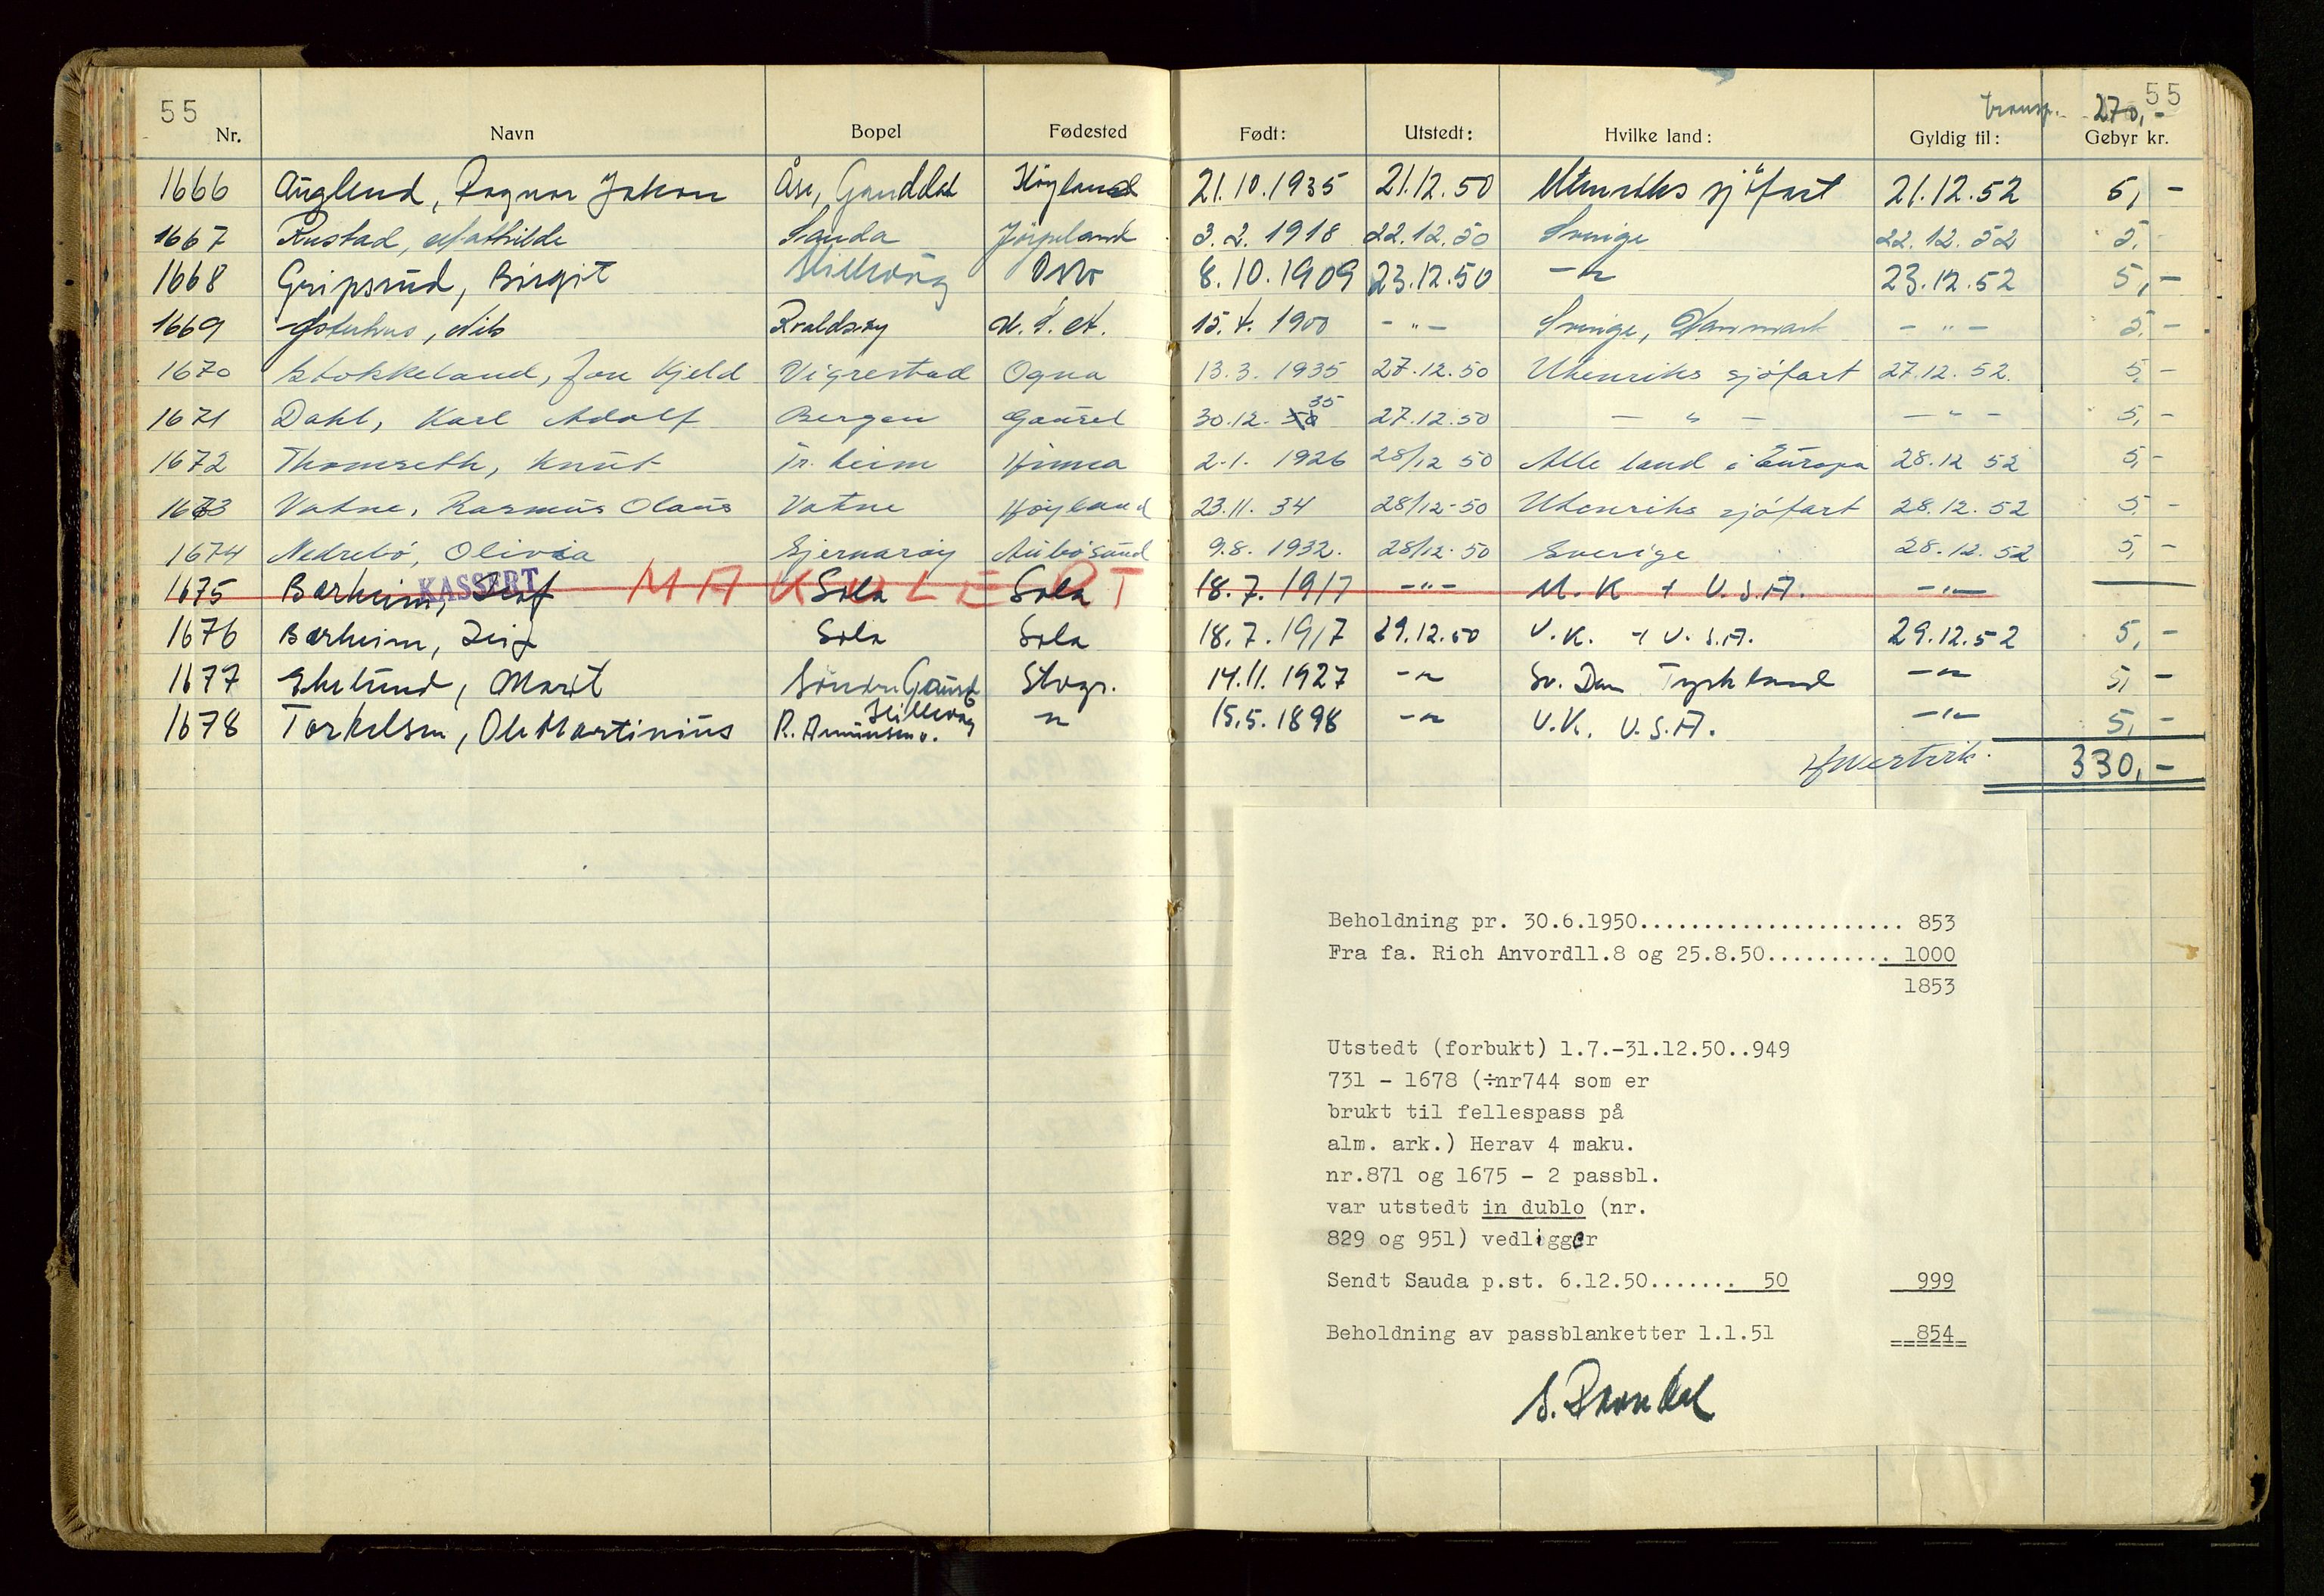 55
transp. 270,- 55
Nr. Navn Bopel Fødested Født: Utstedt: Hvilke land: Gyldig til: Gebyr kr.
1666 Auglend, Ragnar Johan Åse, Ganddal Høyland 21.10.1935 21.12.50 Utenriks sjøfart 21.12.52 5,-
1667 Rustad, Mathilde Sauda Jørpeland 3.2.1918 22.12.50 Sverige 22.12.52 5,-
1668 Gripsrud, Birgit Hillevåg Oslo 8.10.1909 23.12.50 -"- 23.12.52 5,-
1669 Østerhus, Nils Kvaldsøy 15.4.1900 - " - Sverige, Danmark - " - 5,-
1670 Stokkeland, Jon Kjeld Vigrestad Ogna 13.3.1935 27.12.50 Utenriks sjøfart 27.12.52. 5,-
1671 Dahl, Karl Adolf Bergen Gausel 30.12. 35 27.12.50 - " - - " - 5,-
1672 Thomseth, Knut Tr.heim Hinna 2.1.1926 28/12 50 Alle land i Europa 28.12 52 5,-
1673 Vatne, Rasmus Olaus Vatne Høyland 23.11.34 28/12-50 Utenriks sjøfart 28.12.52 5,-
1674 Nedrebø, Olivia Sjernarøy Aubøsund 9.8.1932. 28/12-50 Sverige 28.12.52 5,-
1675 Barheim, Leif KASSERT MAKULERT Sola Sola 18.7.1917 -"- U.K + U.S.A. -"-
1676 Barheim, Leif Sola Sola 18.7.1917 29.12.50 U.K. + U.S.A. 29.12.52 5,-
1677 Ekelund, Marit Søndre Gausel Hillevåg Stvgr. 14.11.1927 -"- Sv. Dan Tyskland -"- 5,-
1678 Torkelsen, Ole Martinius R. Amundsens v. " 15.5.1898 -"- U.K. U.S.A. -"- 5,-
330,-
Beholdning pr. 30.6.1950...................... 853
Fra fa. Rich Anvord11.8 og 25.8.50.......... 1000
1853
Utstedt (forbukt) 1.7.-31.12.50..949
731 - 1678 (÷nr744 som er
brukt til fellespass på
alm. ark.) Herav 4 maku.
nr.871 og 1675 - 2 passbl.
var utstedt in dublo (nr.
829 og 951) vedligger
Sendt Sauda p.st. 6.12.50....... 50 999
Beholdning av passblanketter 1.1.51 854